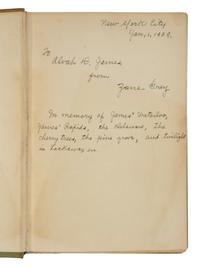 New York City
Jan, 1, 1909.
To
Alvah D. James
from
Zane Grey
In memory of James' Waterloo,
James' Rapids, the Delaware, the
cherry trees, the pine grove, and twilight
in Lackawaxen.